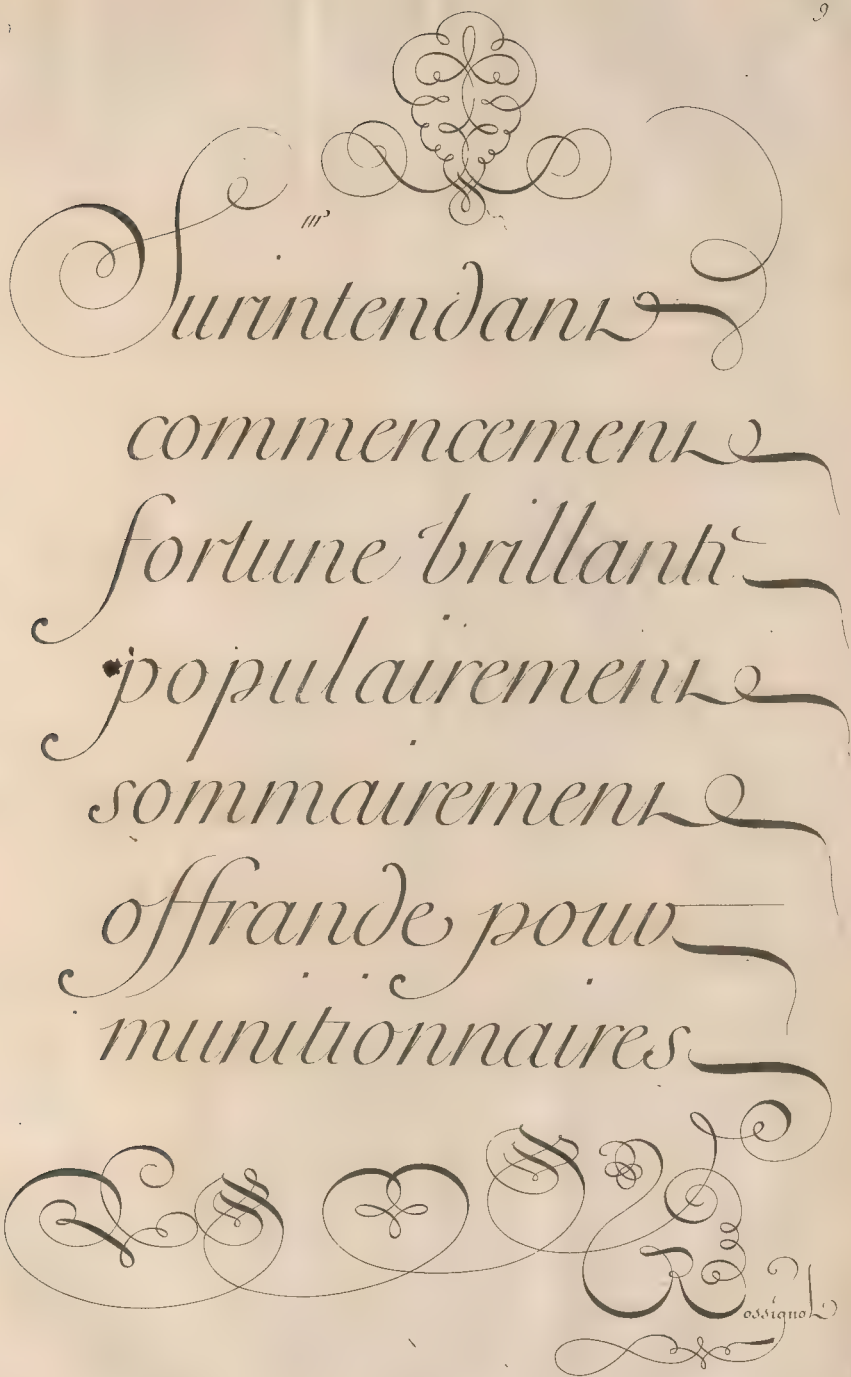 9
Surintendant
commencement
fortune brillant
populairement
sommairement
offrande pour
munitionnaires
Rossignol